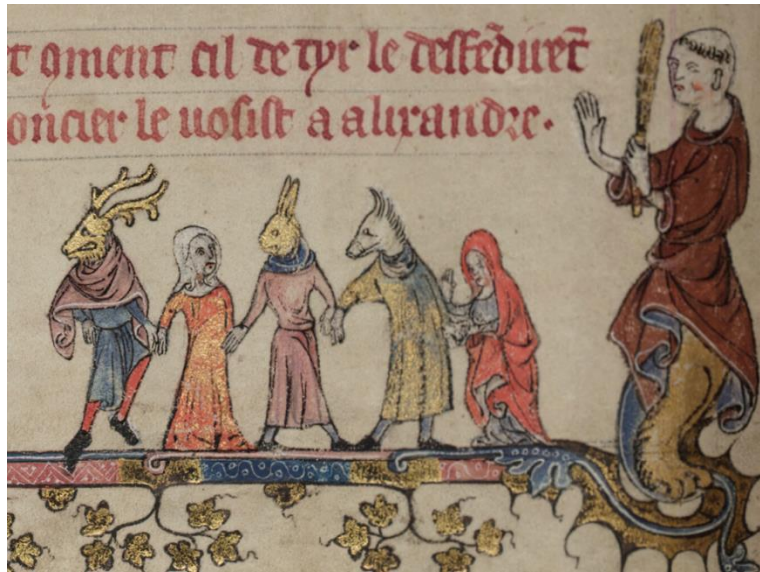 t ꝯment cil de tyr le deffēdirēt
oncier le uosist a alixandre.